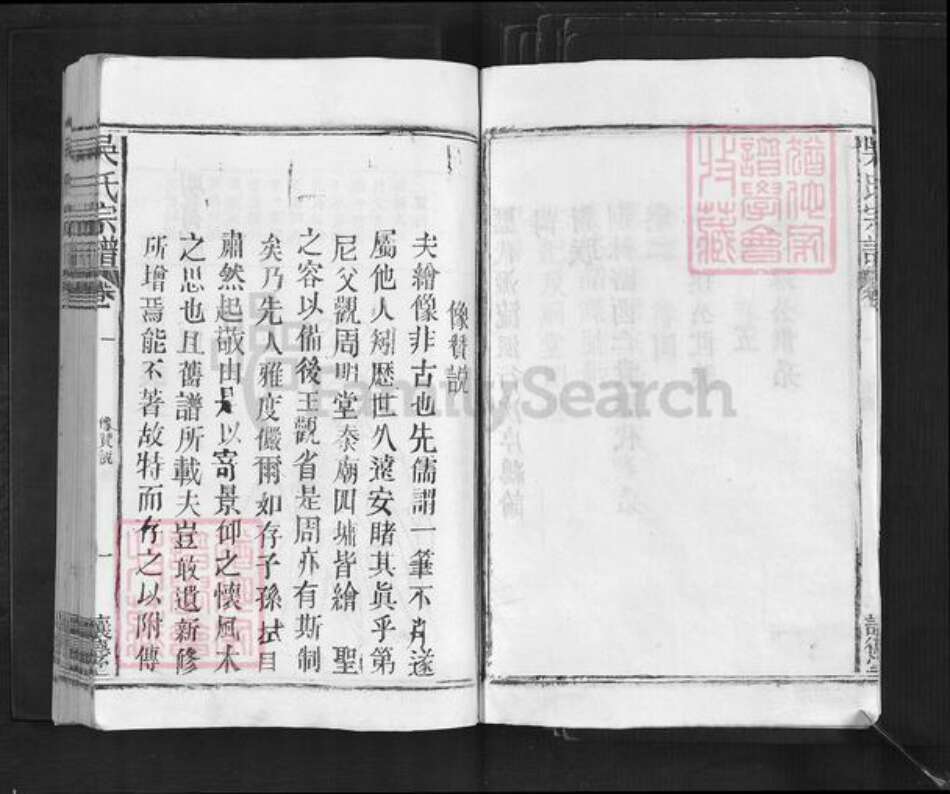 像贊説
夫繪像非古也先儒謂一筆不肖遂
屬他人矧歷世久遠安睹其眞乎第
尼父觀周明堂泰廟四墉皆繪 聖
之容以備後王觀省是周亦有斯制
矣乃先人雅度儼爾如存子孫拭目
肅然起敬由是以寄景仰之懷風木
之思也且舊譜所載夫豈敢遺新修
所增焉能不著故特而存之以附傳
吳氏宗譜
卷一
像贊説
一
譜學會
收藏
FamilySearch